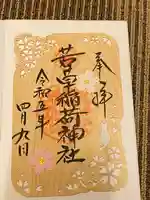 奉拝
苫草稲荷神社
令和五年
四月九日